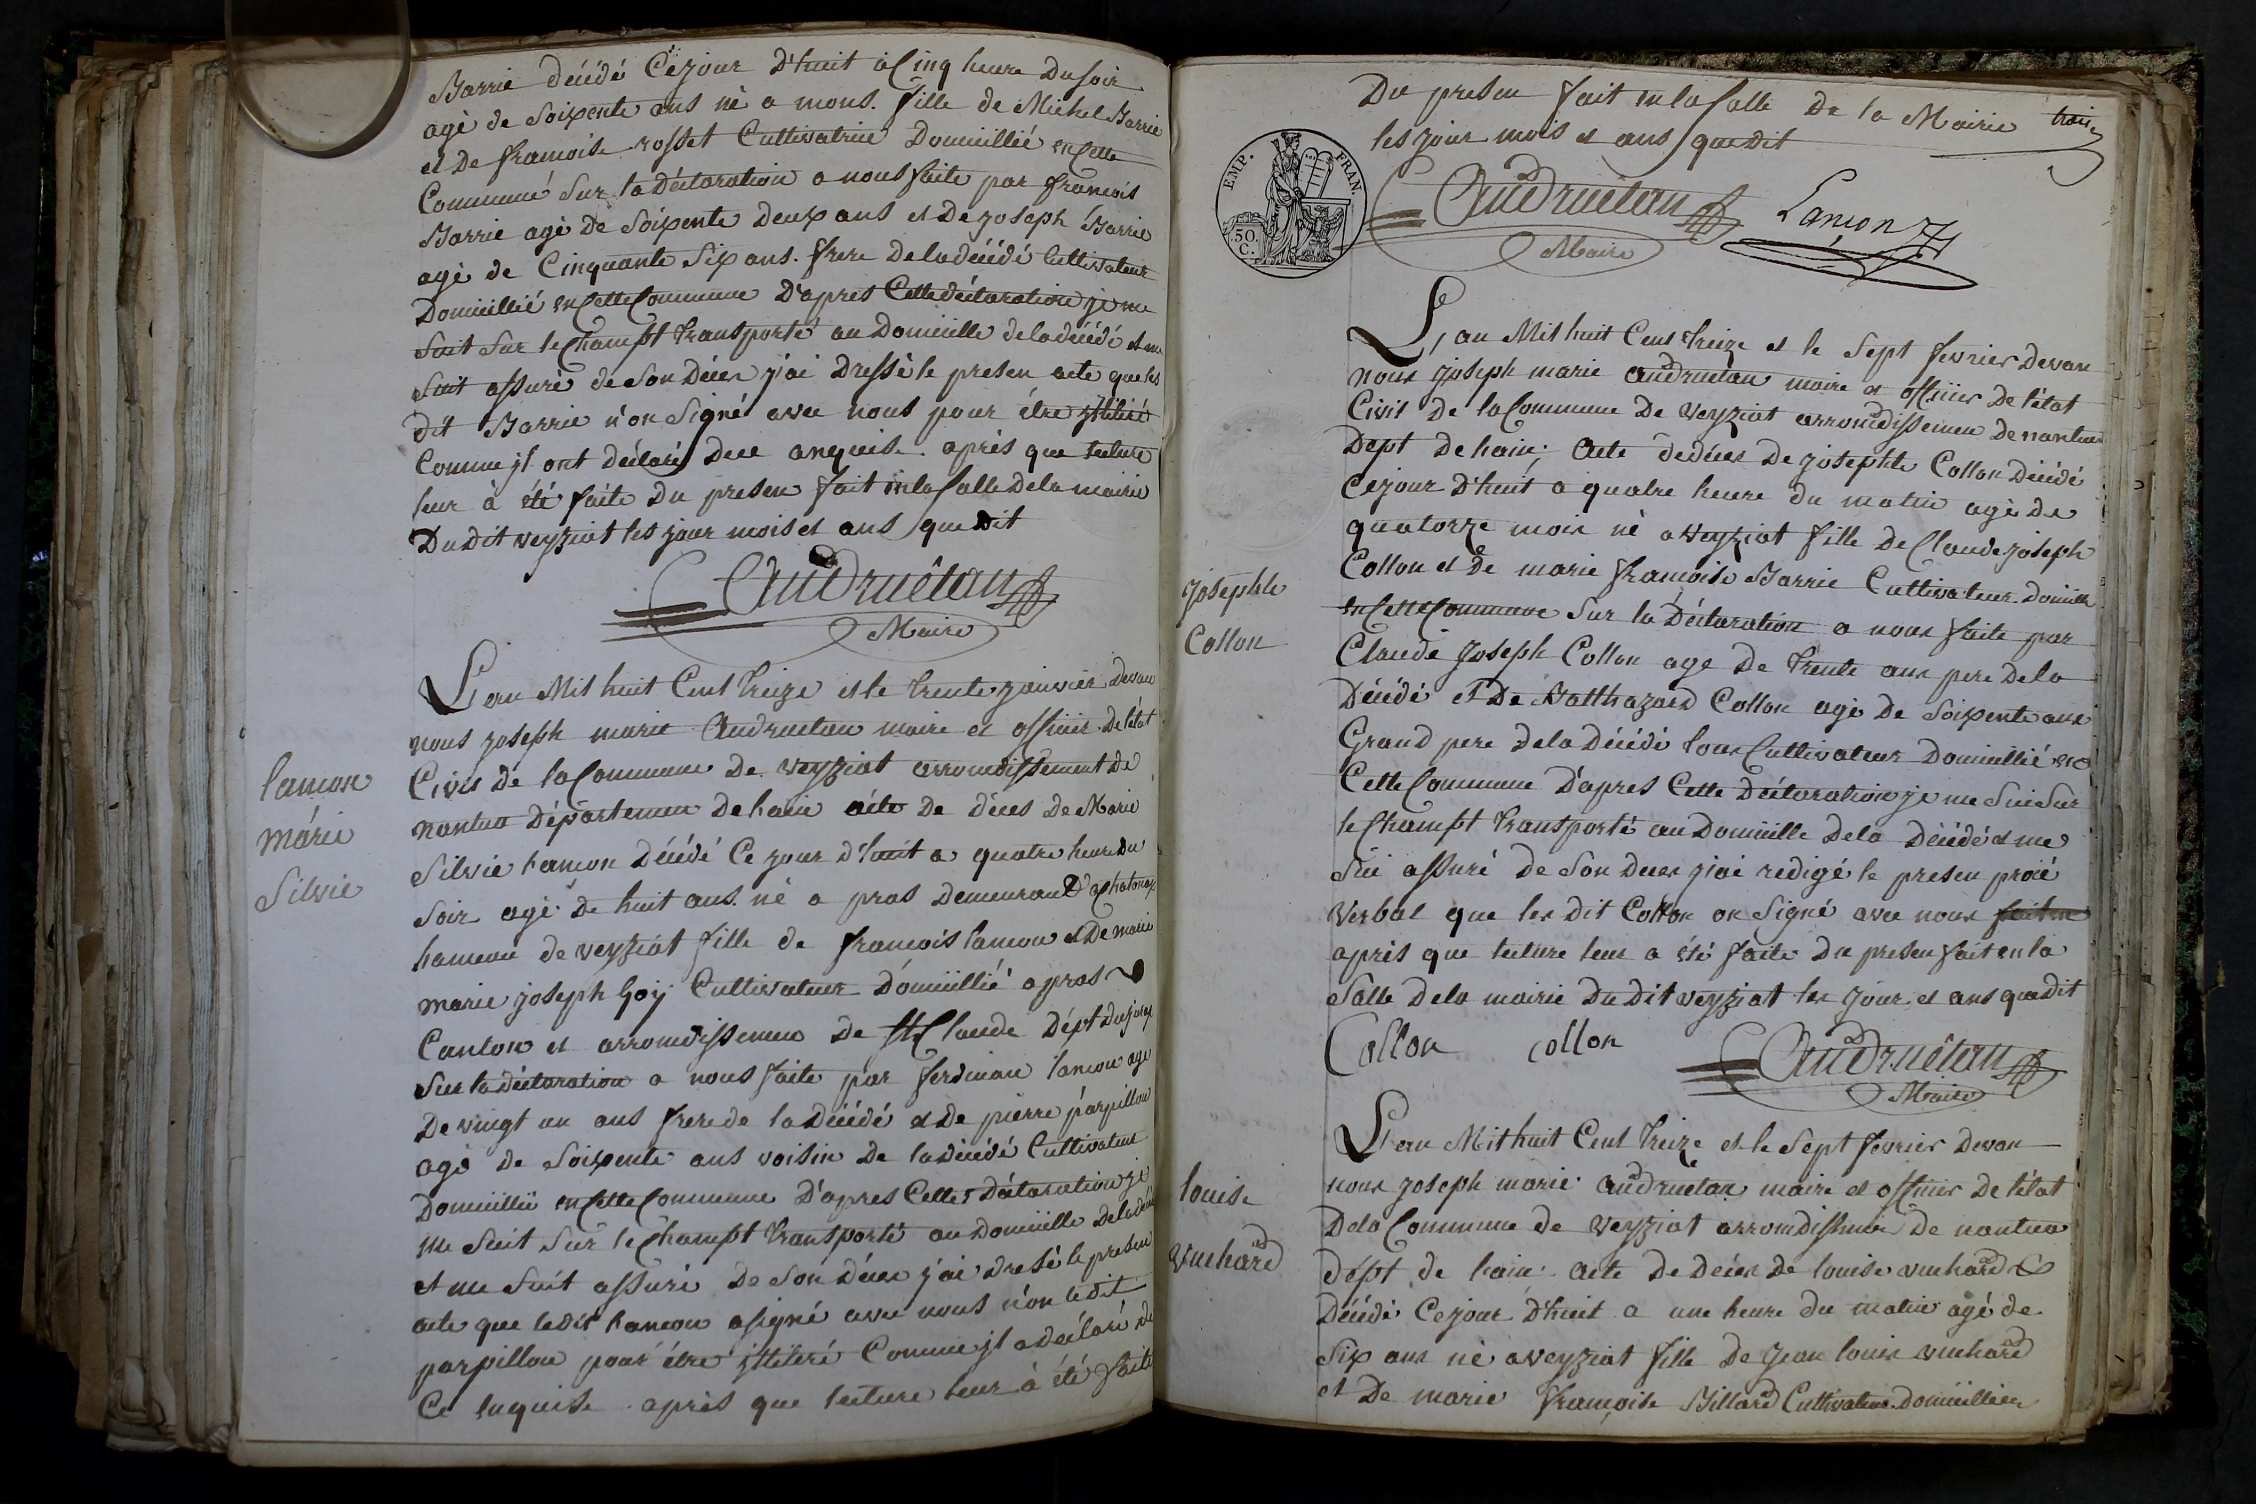 Barrie décédé Cejour D'huit à Cinq heure Du soir
agé de Soixente ans né a mons. fille de Michel Barrie
et De francoise rosset Cultivatrice Domicillié en Cette
Commune Sur la Déclaration a nous faite par francois
Barrie agé De Soixente Deux ans et De joseph Barrie
agé de Cinquante Six ans. frere De la décédé Cultivateur
Domicillié en Cette Commune D'apres Cette déclaration je me
Suit Sur le Champt transporté au Domicille de la décédé et me
Suit assuré de Son Déces j'ai Dressé le presen acte que les
dit Barrie n'on Signé avec nous pour étre jlliteré
Comme jl ont déclaré Dece enquise. après que lecture
leur à été faite Du presen fait en la Salle De la mairie
Du Dit veyziat les jour mois et ans que Dit
Audruétan
Maire
L'an Mil huit Cent treize et le trente janvier devan
nous joseph marie Audruetan maire et officier De l'état
Civis de la Commune De veyziat arrondissement De
nantua Département De lain acte De déces De Marie
Silvie lancon Décédé Ce jour d'huit a quatre heure Du
Soir agé De huit ans. né a pras Demeurant a Chatonax
hameau de veyziat fille de francois lancon et De marie
marie joseph Goy Cultivateur Domicillié a pras
Canton et arrondissemen De St Claude Dépt Du jura
Sur la déclaration a nous faite par ferdinan lancon agé
De vingt un ans frere de la Décédé et De pierre parpillon
agé de Soixente ans voisin De la décédé Cultivateur
Domicillié en Cette Commune D'apres Cette Déclaration je
me Suit Sur le Champt transporté au Domicille De la décédé
et me Suit assuré De Son Déces j'ai dresé le presen
acte que le dit lancon a signé avec nous n'on le dit
parpillon pour étre jlliteré Comme jl a declaré de
Ce enquise. après que lecture leur à été faite
lancon
marie
Silvie
Du presen fait en la Salle De la Mairie
les jour mois et ans que dit
treize
EMP. FRAN.
50. C.
Audruétan
Maire
Lançon
L'an Mil huit Cent treize et le Sept fevrier devan
nous joseph marie audruetan maire et officier De l'état
Civil De la Commune De veyziat arrondissemen De nantua
Dept De lain; Acte de déces De josephte Collon Décédé
Cejour D'huit a quatre heure du matin agé De
quatorze mois né a veyziat fille De Claude joseph
Collon et De marie francoise Barrie Cultivateur domicillé
en Cette Commune Sur la Déclaration a nous faite par
Claude joseph Collon agé De trente ans pere De la
Décédé et De Balthazard Collon agé De Soixente ans
Grand pere De la Décédé tous Cultivateur Domicillié en
Cette Commune D'apres Cette Déclaration je me Suis Sur
le Champt transporté au Domicille De la Décédé et me
Sui assuré De Son Deces j'ai redigé le presen procé
Verbal que les dit Collon on Signé avec nous fait en
après que lecture leur a été faite Du presen fait en la
Salle De la mairie Du Dit veyziat les jour et ans que dit
Collon collon Audruétan
Maire
josephte
Collon
L'an Mil huit Cent treize et le Sept fevrier Devan
nous joseph marie audruetan maire et officier De l'état
De la Commune De veyziat arrondissemen De nantua
Dépt de lain. acte De Déces De louise vuchard
Décédé Cejour D'huit a une heure du matin agé de
Six ans né a veyziat fille De jean louis vuchard
et De marie françoise Billard Cultivateur Domicillier
louise
Vuchard